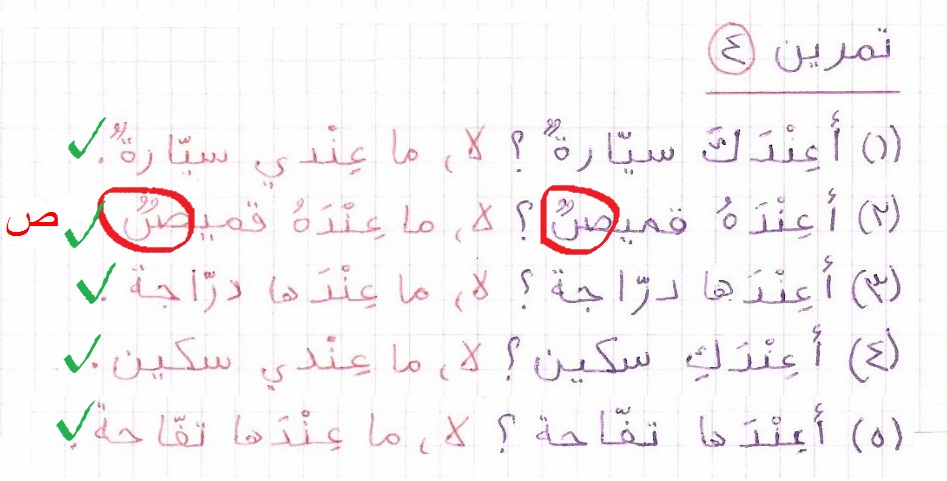 تمرين ٤
(١) أَعِنْدَكَ سيّارةٌ ؟ لا، ما عِنْدي سيّارةٌ.
(٢) أعِنْدَهُ قميصٌ ؟ لا، ما عِنْدَهُ قميصٌ ص
(٣) أَعِنْدَها درّاجة ؟ لا، ما عِنْدَها درّاجة.
(٤) أَعِنْدَكِ سكين ؟ لا، ما عِنْدي سكين.
(٥) أَعِنْدَها تفّاحة ؟ لا، ما عِنْدَها تفّاحة.